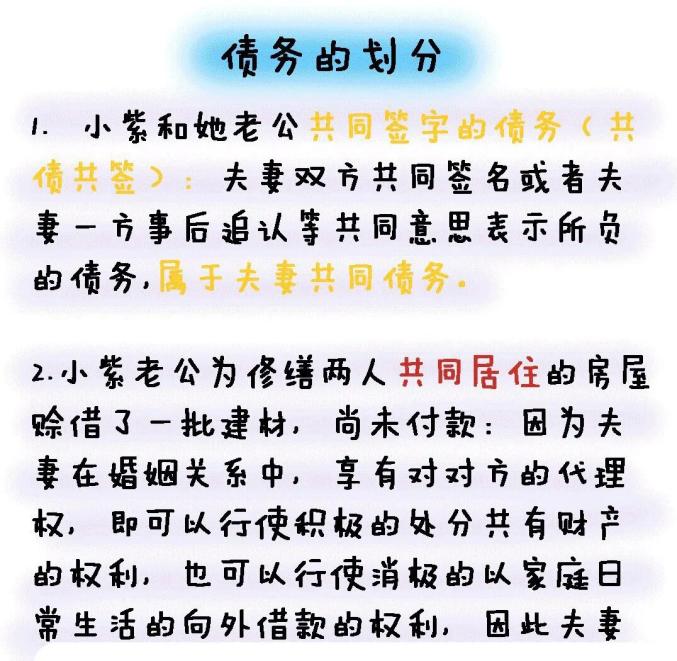 债务的划分
1. 小紫和她老公共同签字的债务（共
债共签）：夫妻双方共同签名或者夫
妻一方事后追认等共同意思表示所负
的债务,属于夫妻共同债务。
2.小紫老公为修缮两人共同居住的房屋
赊借了一批建材，尚未付款：因为夫
妻在婚姻关系中，享有对对方的代理
权，即可以行使积极的处分共有财产
的权利，也可以行使消极的以家庭日
常生活的向外借款的权利，因此夫妻